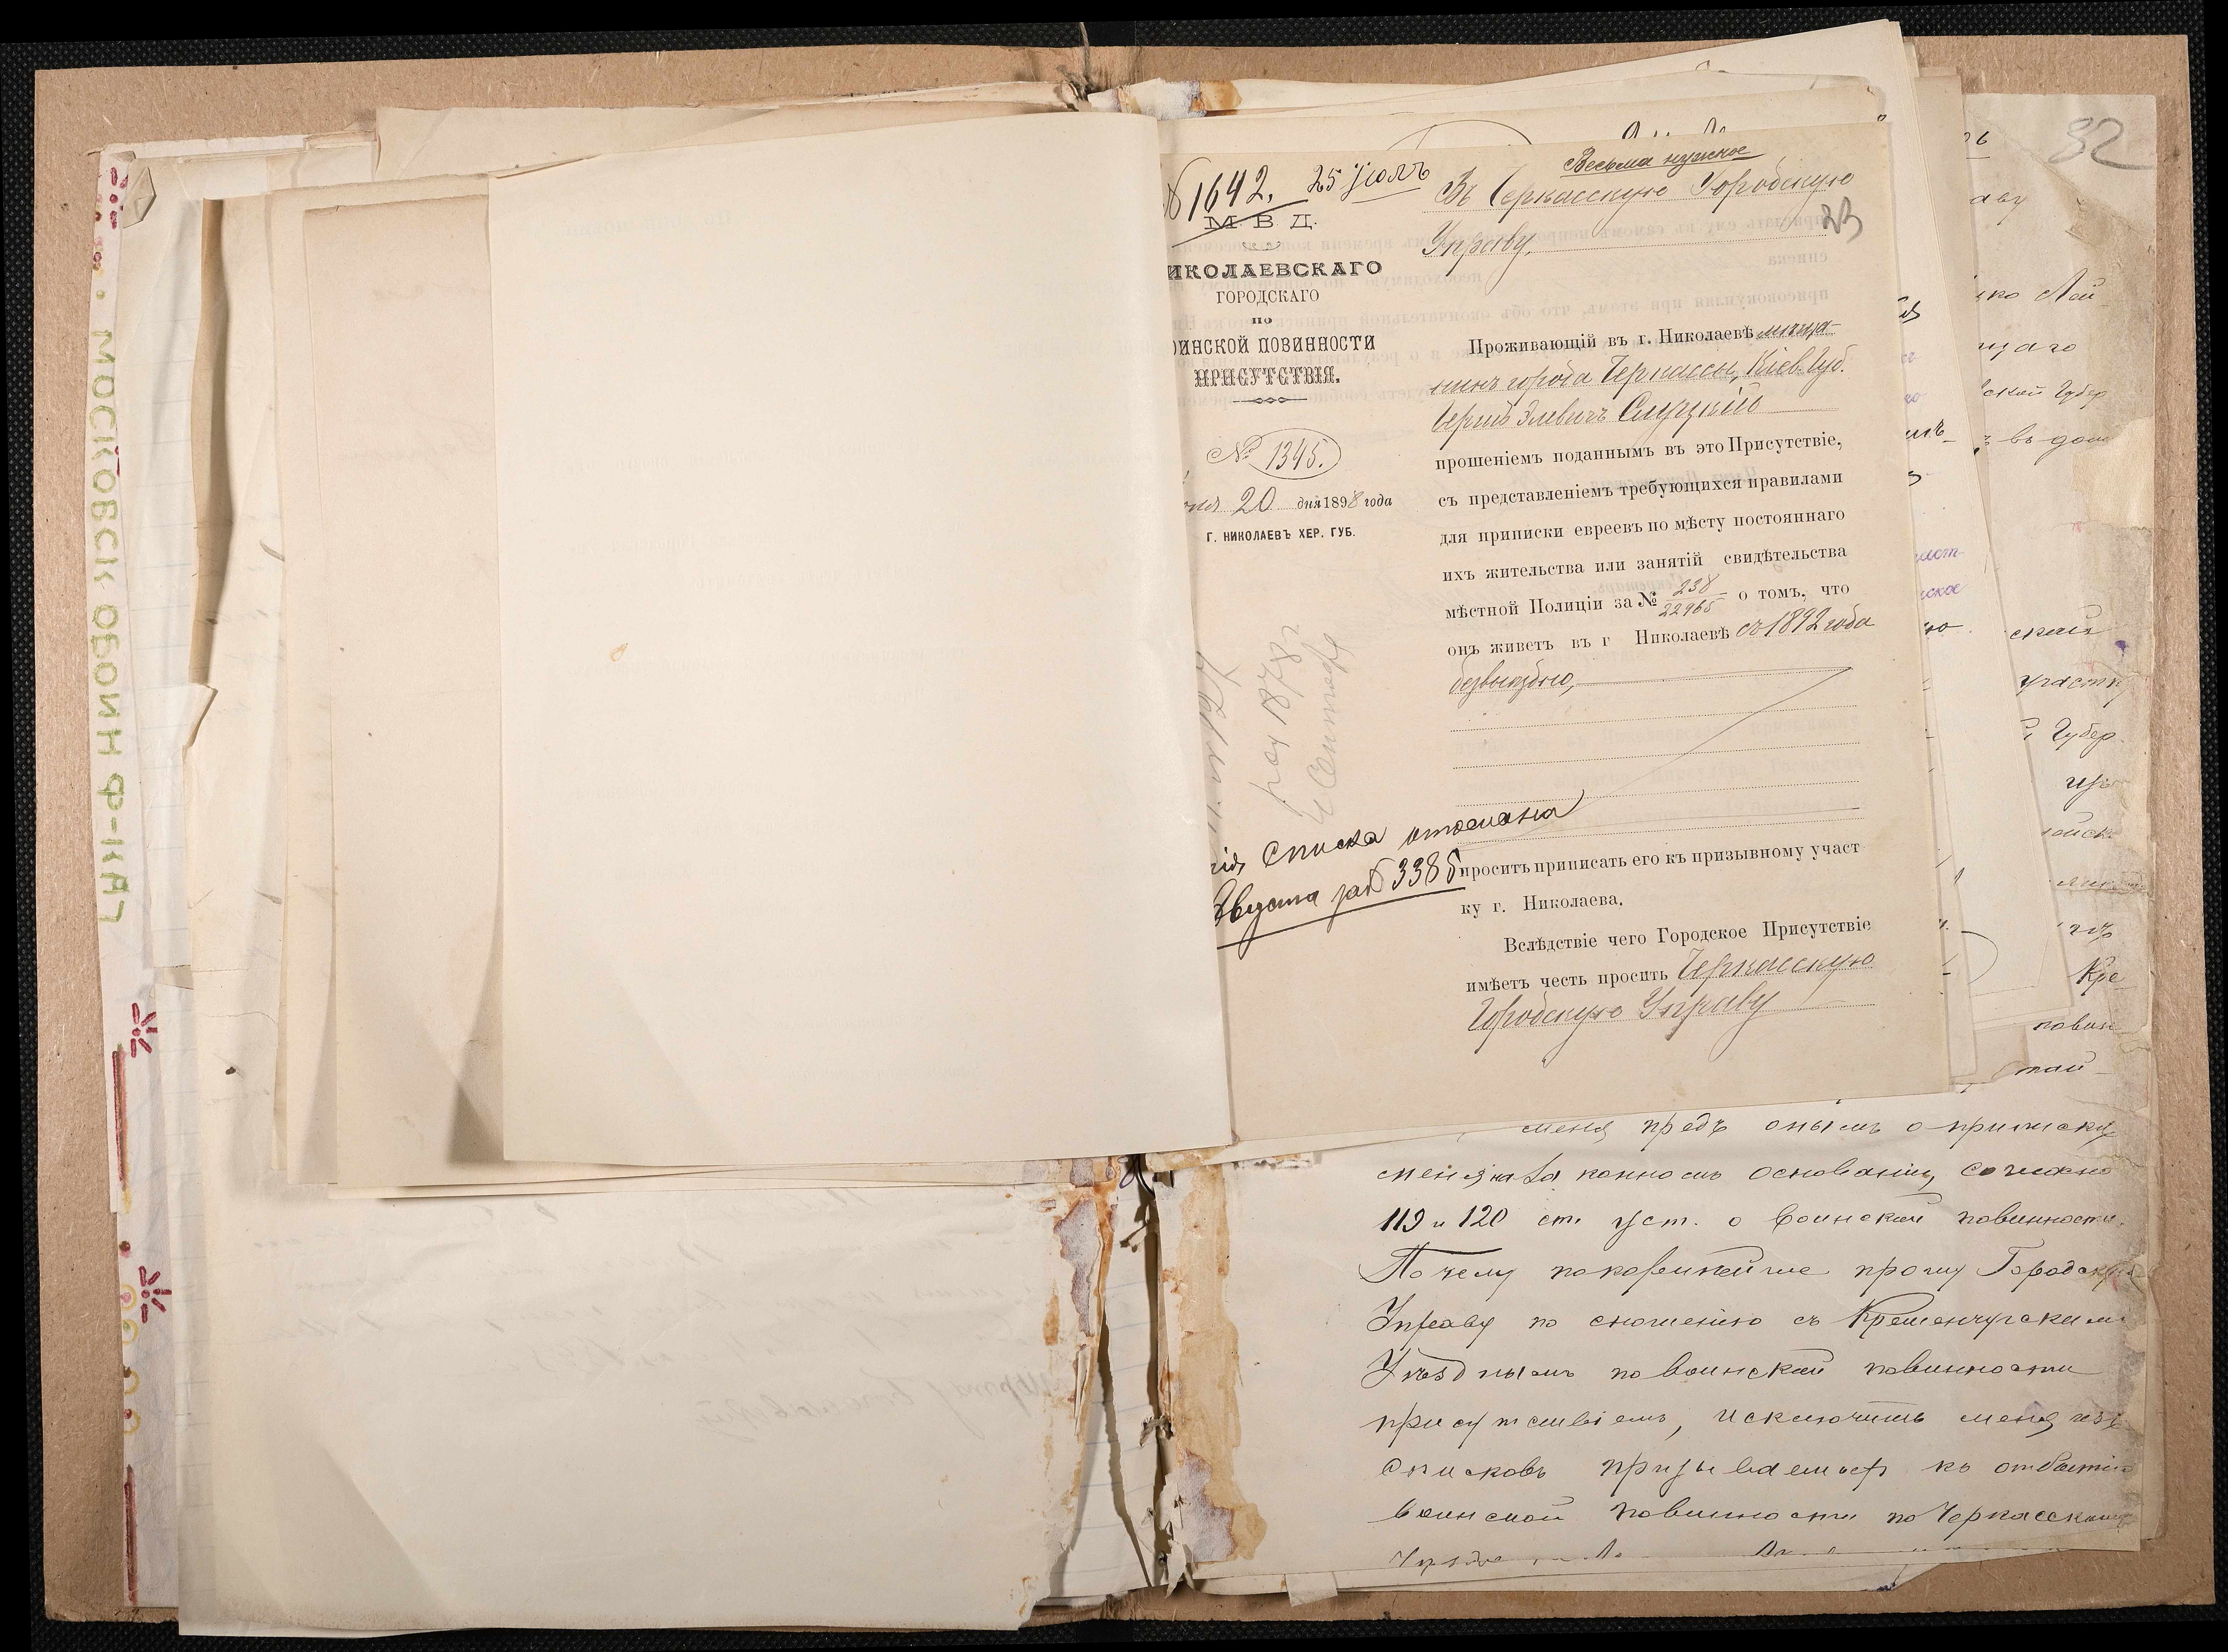 82
№ 1642. 25 Іюль
М. В. Д.
ИКОЛАЕВСКАГО
ГОРОДСКАГО
по
ОИНСКОЙ ПОВИННОСТИ
ПРИСУТСТВІЯ.
№ 1345.
20 дня 1898 года
Г. НИКОЛАЕВЪ ХЕР. ГУБ.
род 1878 г.
Сентября
Списка отослана
Августа за № 3385
Весьма нужное
Въ Черкасскую Городскую
Управу.
33
Проживающій въ г. Николаевѣ мѣща-
нинъ города Черкассы, Кіев. губ.
Элевичъ Слуцкій
прошеніемъ поданнымъ въ это Присутствіе,
съ представленіемъ требующихся правилами
для приписки евреевъ по мѣсту постояннаго
ихъ жительства или занятій свидѣтельства
мѣстной Полиціи за № 238/22965 о томъ, что
онъ живетъ въ г Николаевѣ съ 1892 года
безвыѣздно,
проситъ приписать его къ призывному участ
ку г. Николаева.
Вслѣдствіе чего Городское Присутствіе
имѣетъ честь просить Черкасскую
Городскую Управу
аву
щаго
ской Губер
въ дом
участк
Губер.
Кре
повин
меня предъ онымъ о приписки
меня на законномъ основаніи, согласно
119 и 120 ст. уст. о воинской повинности.
Почему покорнейше прошу Городскую
Управу по сношенію съ Кременчугскимъ
Уѣзднымъ по воинской повинности
присутствіемъ, исключить меня изъ
списковъ призываемыхъ къ отбытію
воинской повинности по Черкасскому
МОСКОВСК ОБОИН Ф-КА